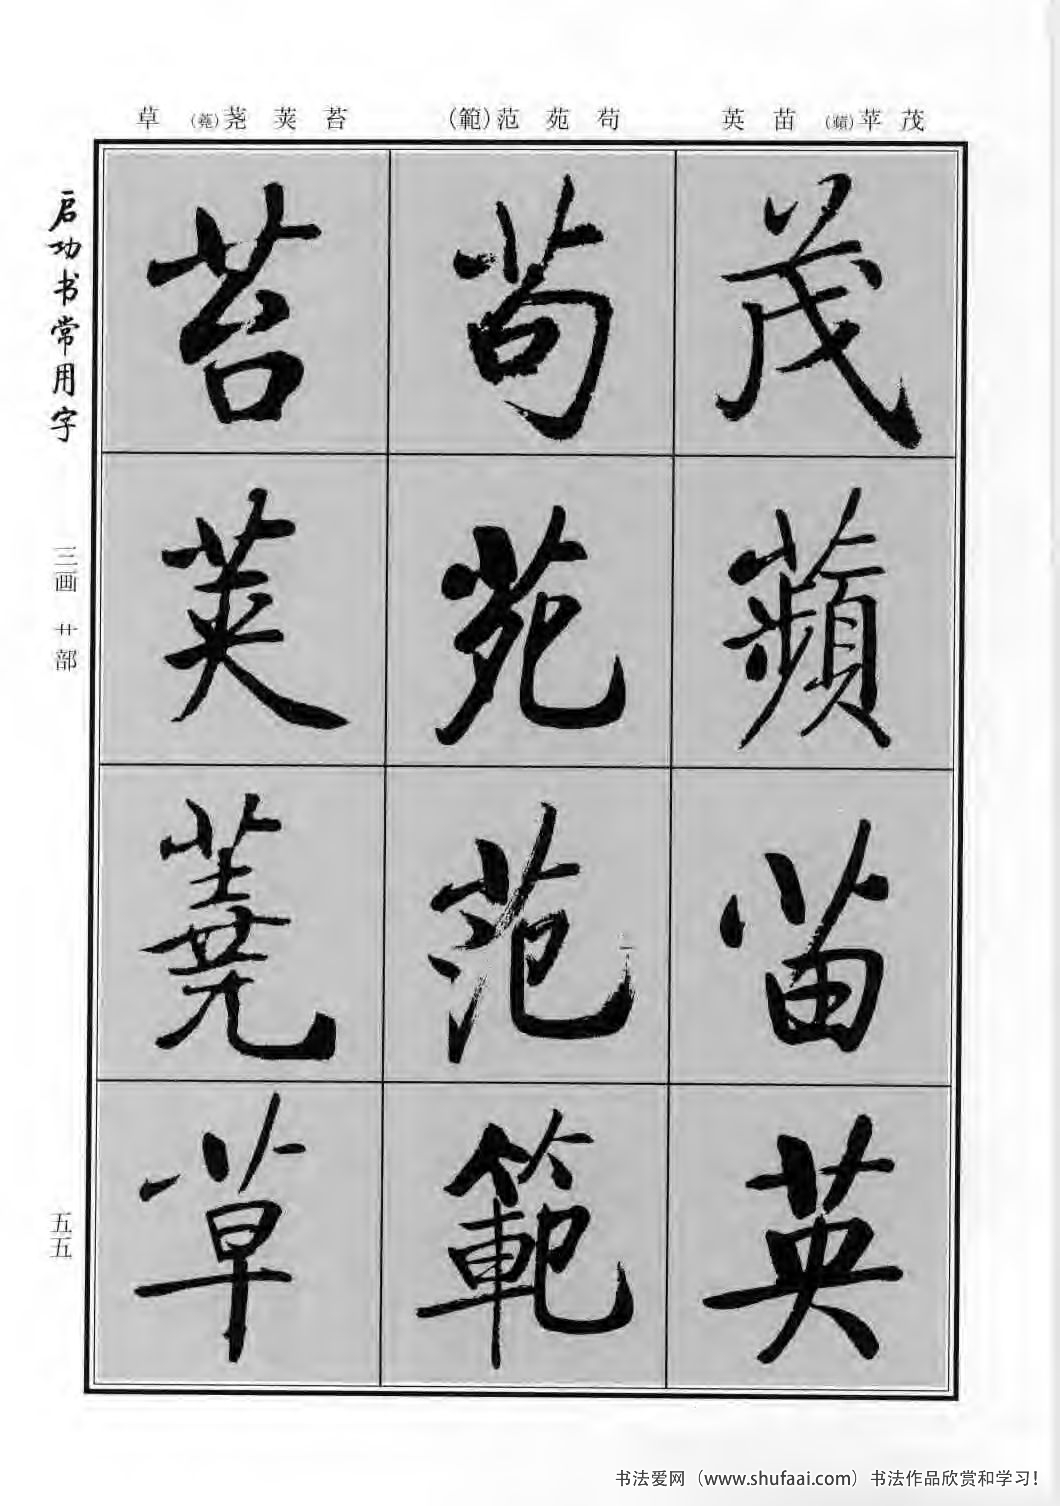 茂苹(蘋)苗英
苟苑范(範)
苔荚荛(蕘)草
茂
蘋
苗
英
苟
苑
范
範
苔
荚
蕘
草
启功书常用字
三画 艹部
五五
书法爱网（www.shufaai.com）书法作品欣赏和学习！